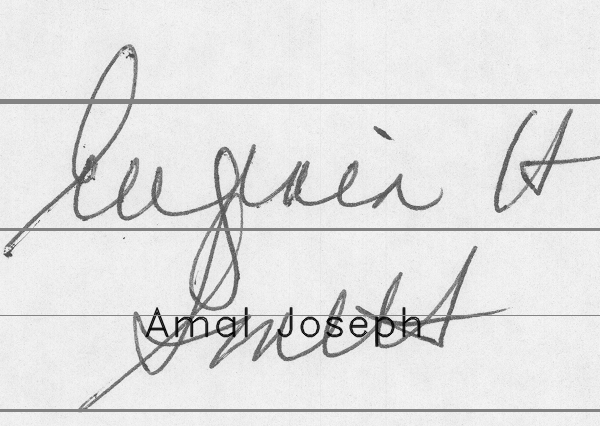 Eugenia H
Smith
Amal Joseph